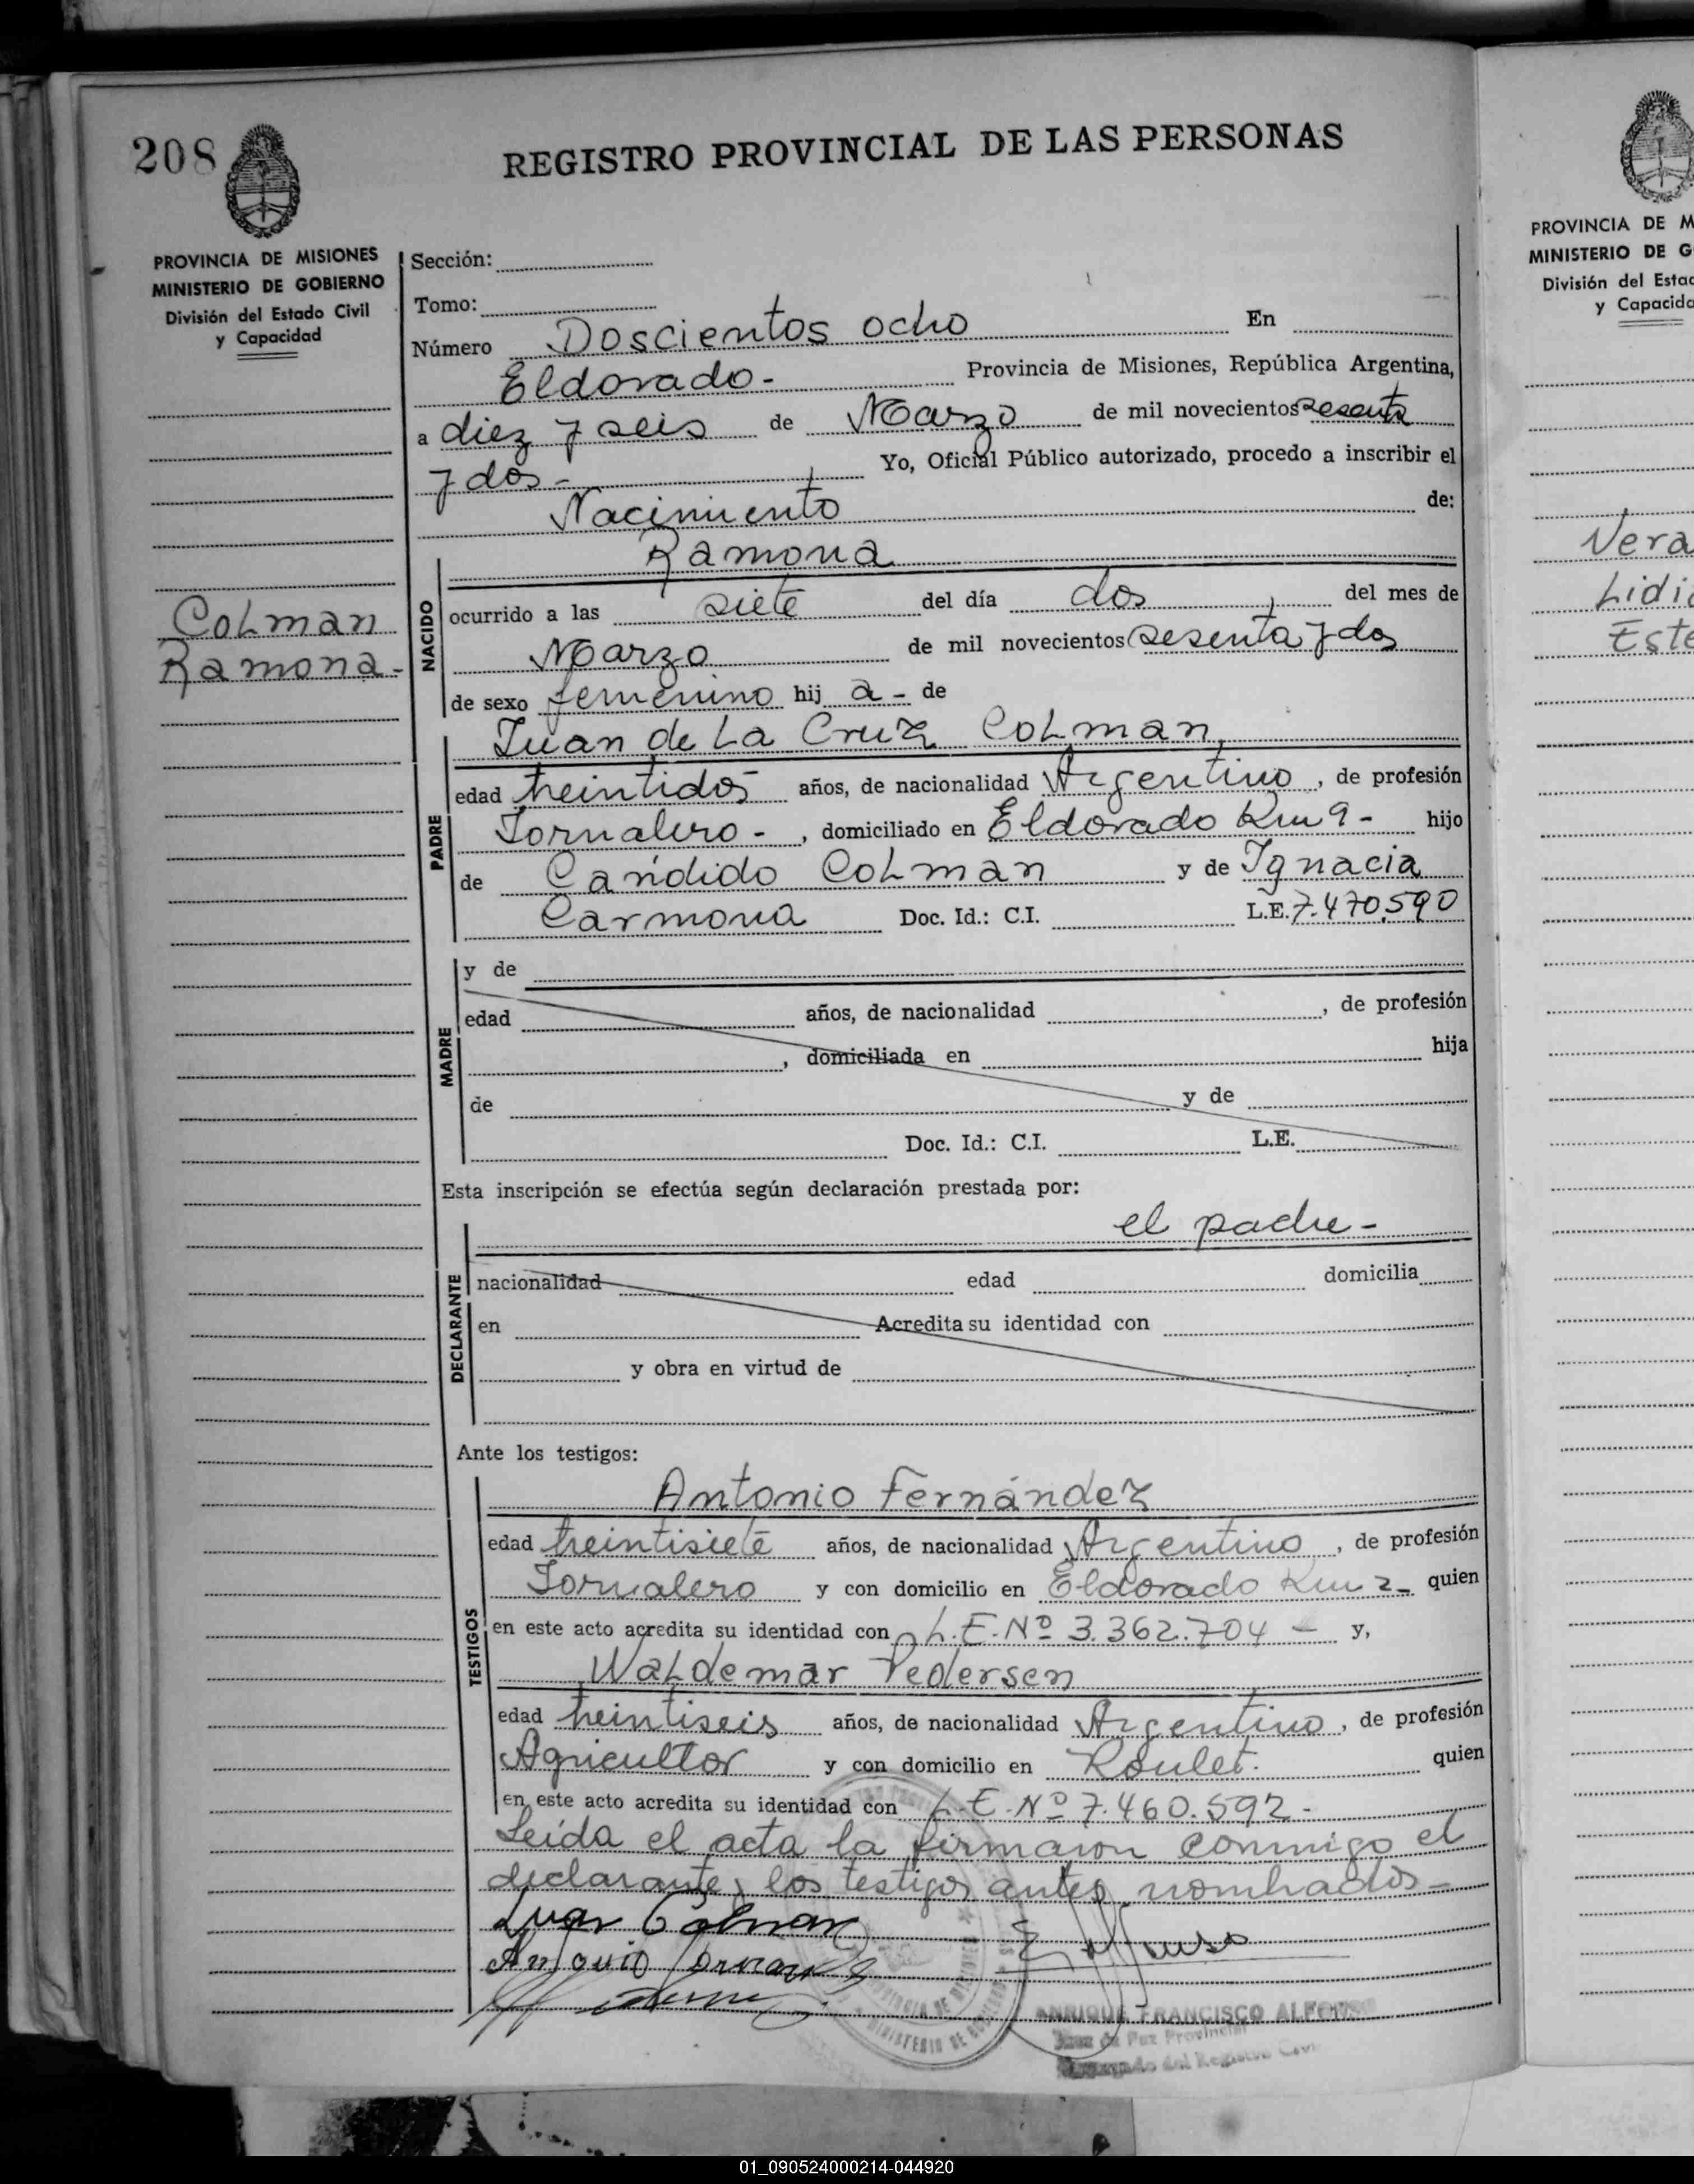 208
REGISTRO PROVINCIAL DE LAS PERSONAS
PROVINCIA DE MISIONES
MINISTERIO DE GOBIERNO
División del Estado Civil
y Capacidad
Colman
Ramona-
Sección:
Tomo:
Número Doscientos ocho En
Eldorado- Provincia de Misiones, República Argentina,
a diez y seis de Marzo de mil novecientos sesenta
y dos- Yo, Oficial Público autorizado, procedo a inscribir el
Nacimiento de:
Ramona
NACIDO
ocurrido a las siete del día dos del mes de
Marzo de mil novecientos sesenta y dos
de sexo femenino hij a- de
Juan de La Cruz Colman,
PADRE
edad treintidos años, de nacionalidad Argentino, de profesión
Jornalero-, domiciliado en Eldorado Km 9- hijo
de Cándido Colman y de Ignacia
Carmona Doc. Id.: C.I. L.E. 7.470.590
MADRE
y de
edad años, de nacionalidad , de profesión
, domiciliada en hija
de y de
Doc. Id.: C.I. L.E.
Esta inscripción se efectúa según declaración prestada por:
el padre-
DECLARANTE
nacionalidad edad domicilia
en Acredita su identidad con
y obra en virtud de
Ante los testigos:
TESTIGOS
Antonio Fernández
edad treintisiete años, de nacionalidad Argentino, de profesión
Jornalero y con domicilio en Eldorado Km 2- quien
en este acto acredita su identidad con L.E. Nº 3.362.704 - y,
Waldemar Pedersen
edad treintiseis años, de nacionalidad Argentino, de profesión
Agricultor y con domicilio en Roulet. quien
en este acto acredita su identidad con L.E. Nº 7.460.592-
Leída el acta la firmaron conmigo el
declarante y los testigos antes nombrados-
Juan Colman
ENRIQUE FRANCISCO ALFONSO
Juez de Paz Provincial
Encargado del Registro Civil
PROVINCIA DE M
MINISTERIO DE G
División del Estad
y Capacida
Vera
Lidi
Este
01_090524000214-044920